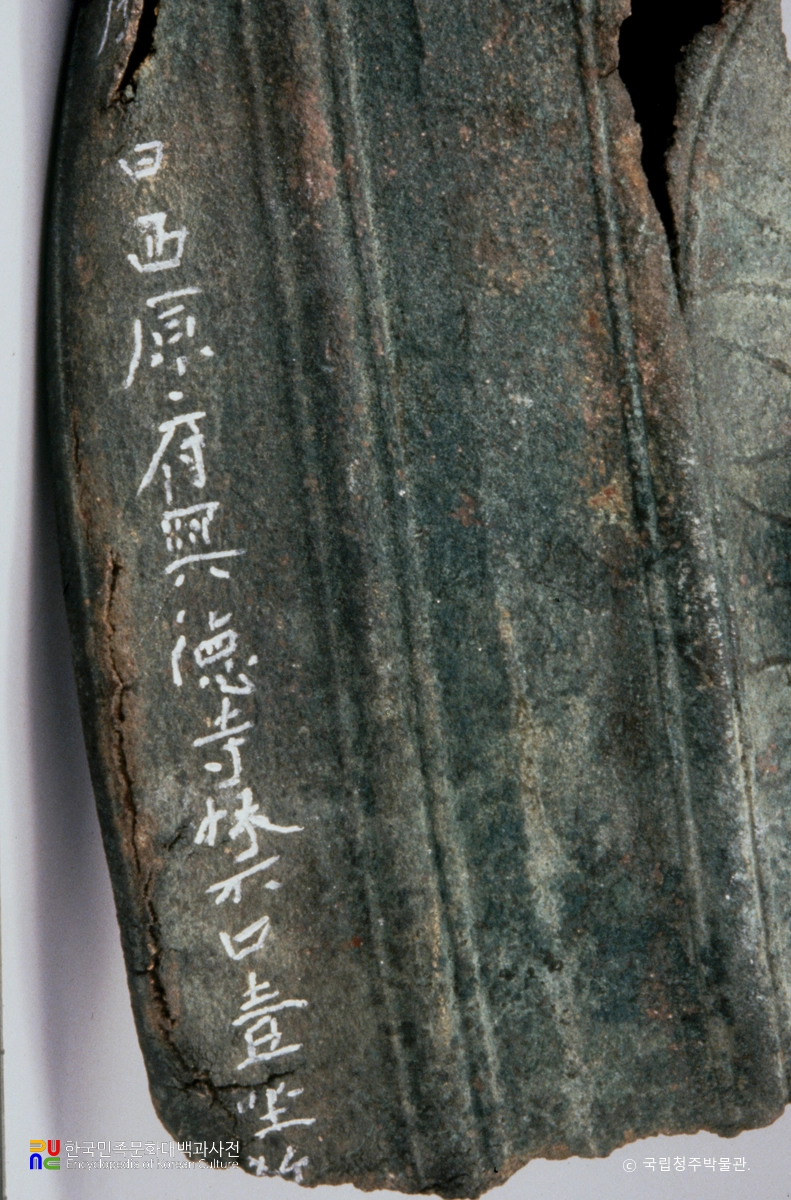 日西原府興德寺禁口壹坐
한국민족문화대백과사전
Encyclopedia of Korean Culture
© 국립청주박물관.